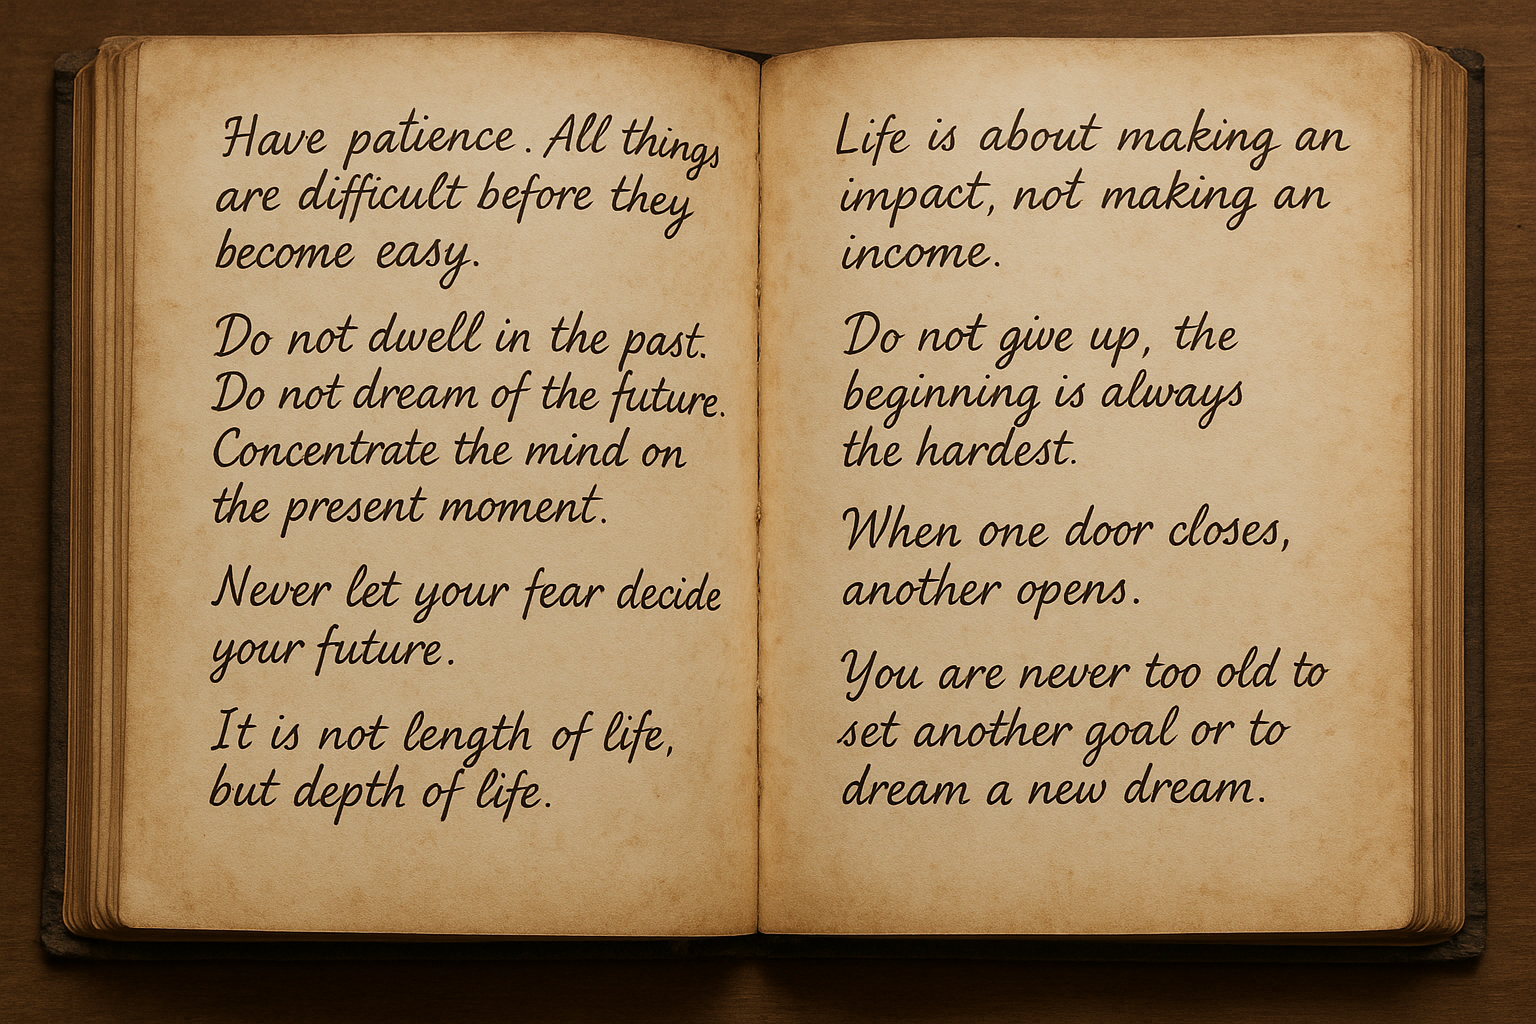 Have patience. All things
are difficult before they
become easy.
Do not dwell in the past.
Do not dream of the future.
Concentrate the mind on
the present moment.
Never let your fear decide
your future.
It is not length of life,
but depth of life.
Life is about making an
impact, not making an
income.
Do not give up, the
beginning is always
the hardest.
When one door closes,
another opens.
You are never too old to
set another goal or to
dream a new dream.